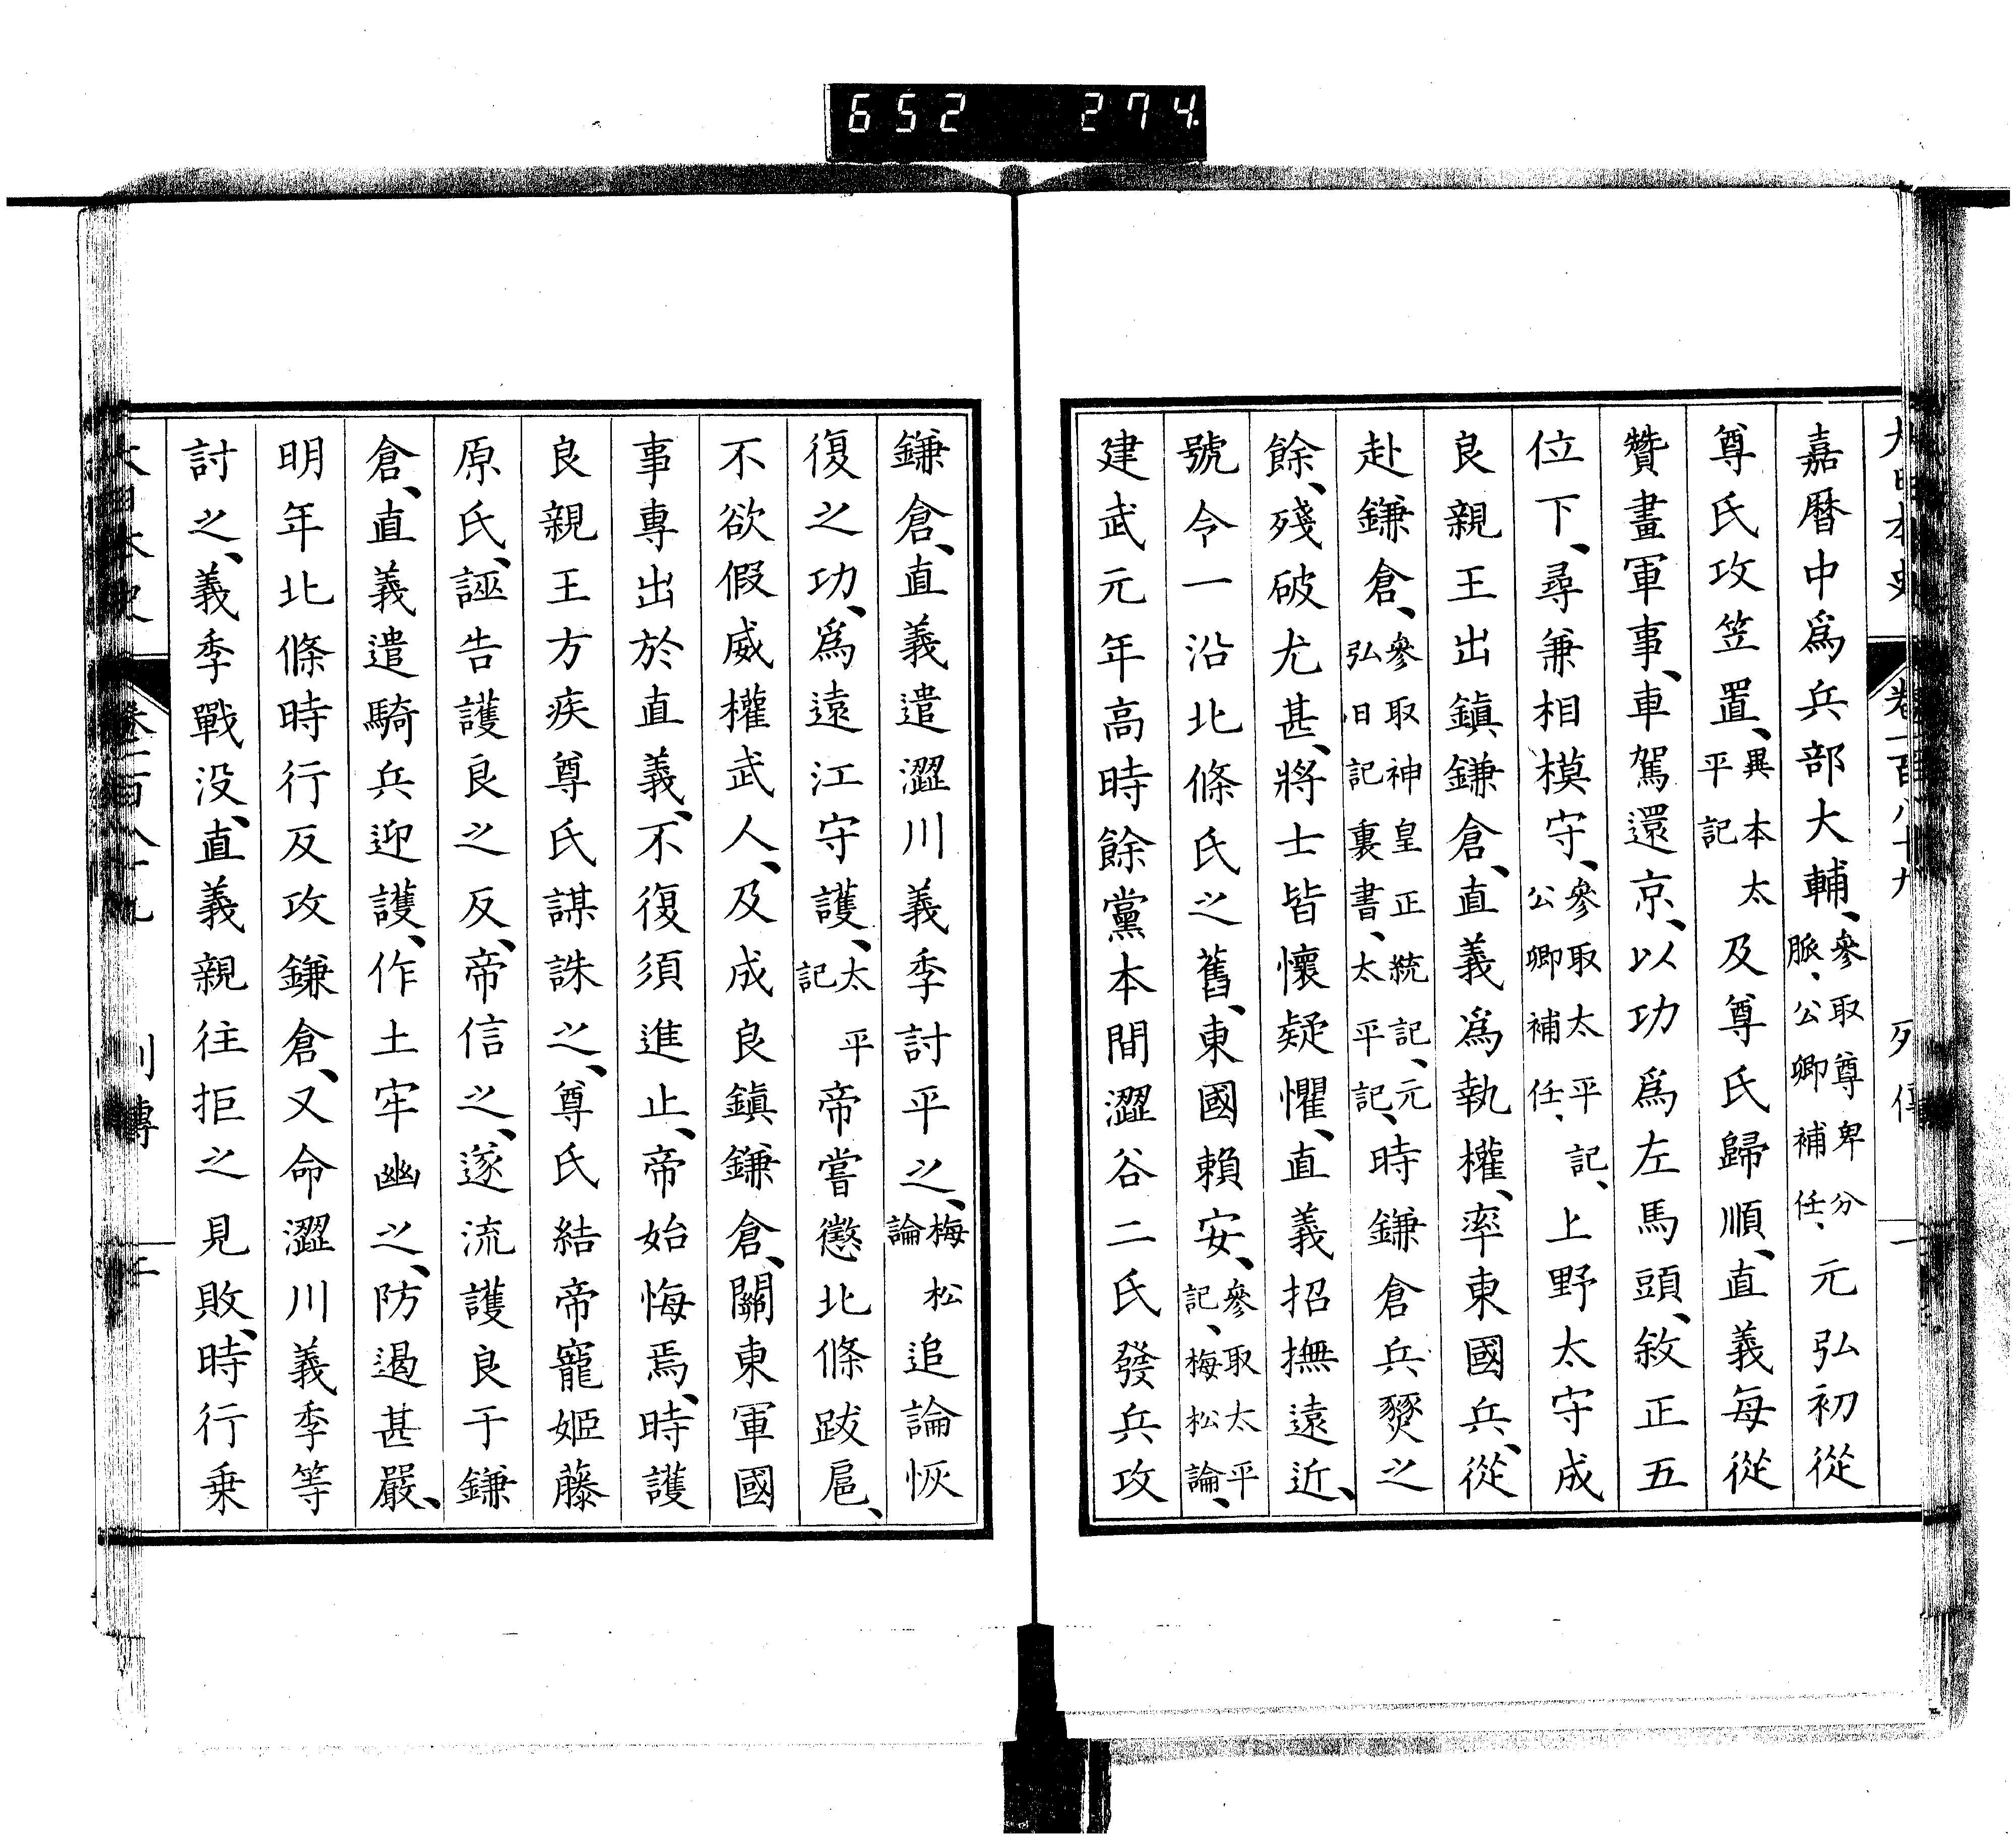 652 274
大日本史 卷一百八十九 列傳 一
嘉曆中爲兵部大輔、參取尊卑分脈、公卿補任、元弘初從
尊氏攻笠置、異本太平記及尊氏歸順、直義每從
贊畫軍事、車駕還京、以功爲左馬頭、敘正五
位下、尋兼相模守、參取太平記、公卿補任、上野太守成
良親王出鎭鎌倉、直義爲執權、率東國兵、從
赴鎌倉、參取神皇正統記、元弘日記裏書、太平記、時鎌倉兵燹之
餘、殘破尤甚、將士皆懷疑懼、直義招撫遠近、
號令一沿北條氏之舊、東國賴安、參取太平記、梅松論、
建武元年高時餘黨本間澀谷二氏發兵攻
鎌倉、直義遣澀川義季討平之、梅松論追論恢
復之功、爲遠江守護、太平記帝嘗懲北條跋扈、
不欲假威權武人、及成良鎭鎌倉、關東軍國
事專出於直義、不復須進止、帝始悔焉、時護
良親王方疾尊氏謀誅之、尊氏結帝寵姬藤
原氏、誣告護良之反、帝信之、遂流護良于鎌
倉、直義遣騎兵迎護、作土牢幽之、防遏甚嚴、
明年北條時行反攻鎌倉、又命澀川義季等
討之、義季戰没、直義親往拒之見敗、時行乗
大日本史 卷一百八十九 列傳